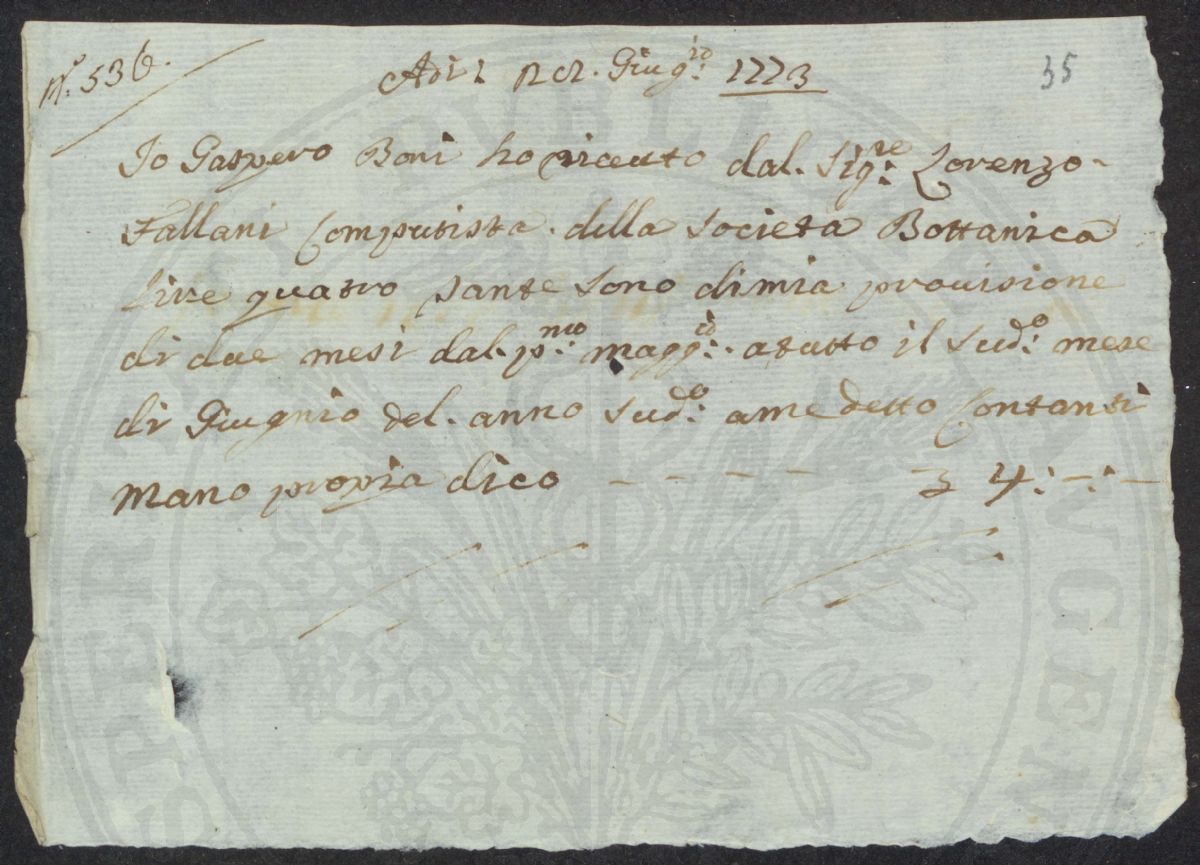 N.º 536.
Adi 1 Giug:io 1773
35
Io Gaspero Boni ho riceuto dal. Sig:re Lorenzo
Fallani Computista della Societa Bottanica
Lire quatro sono di mia prouisione
di due mesi dal. p:mo magg:io a tutto il Sud:o mese
di Giugnio del. anno Sud:o a me detto Contanti
mano propia dico - - - - - 4:-:-